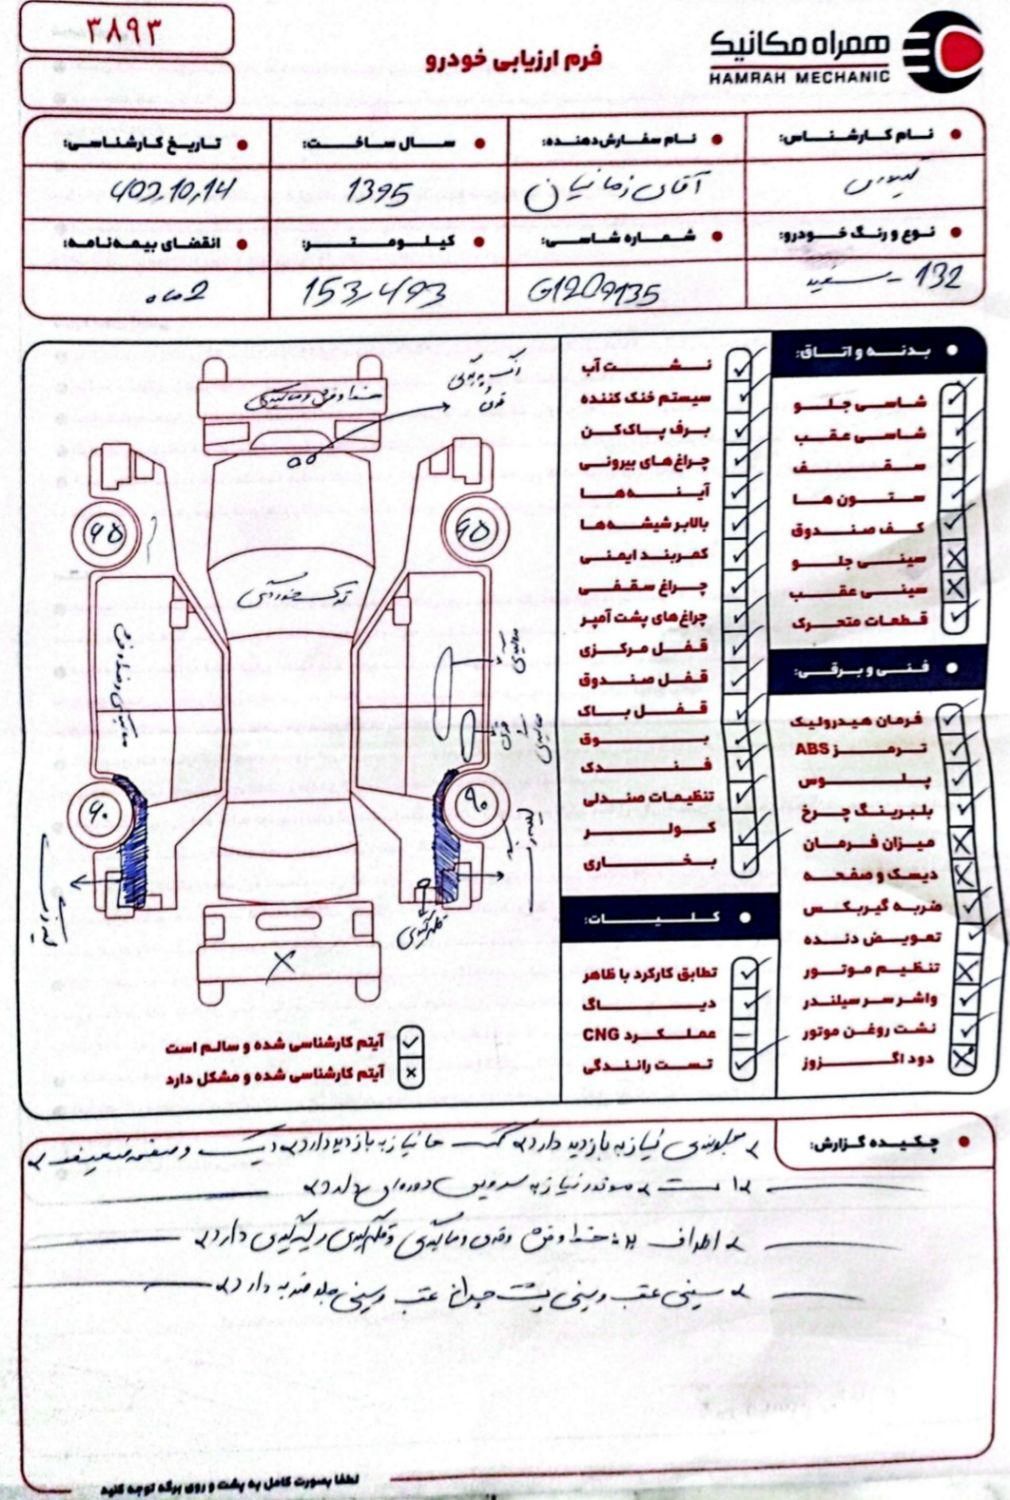 ۳۸۹۳
فرم ارزیابی خودرو
همراه مکانیک
HAMRAH MECHANIC
نام کارشناس:
نام سفارش‌دهنده:
سال ساخت:
تاریخ کارشناسی:
آقای زمانیان
1395
402,10,14
نوع و رنگ خودرو:
شماره شاسی:
کیلومتر:
انقضای بیمه‌نامه:
132 - سفید
G1209135
153,493
2 ماه
بدنه و اتاق:
شاسی جلو
شاسی عقب
سقف
ستون ها
کف صندوق
سینی جلو
سینی عقب
قطعات متحرک
فنی و برقی:
فرمان هیدرولیک
ترمز ABS
پلوس
بلبرینگ چرخ
میزان فرمان
دیسک و صفحه
ضربه گیربکس
تعویض دنده
تنظیم موتور
واشر سر سیلندر
نشت روغن موتور
دود اگزوز
نشت آب
سیستم خنک کننده
برف پاک‌کن
چراغ‌های بیرونی
آینه‌ها
بالابر شیشه‌ها
کمربند ایمنی
چراغ سقفی
چراغ‌های پشت آمپر
قفل مرکزی
قفل صندوق
قفل باک
بوق
فندک
تنظیمات صندلی
کولر
بخاری
کلیات:
تطابق کارکرد با ظاهر
دیاگ
عملکرد CNG
تست رانندگی
خط و فرو رفتگی
ترک خوردگی
۶۵
۶۵
۶۰
۹۰
آیتم کارشناسی شده و سالم است
آیتم کارشناسی شده و مشکل دارد
چکیده گزارش:
جلوبندی نیاز به بازدید دارد نیاز به بازدید دارد دیسک و صفحه ضعیف
است موتور نیاز به سرویس دوره‌ای دارد
اطراف خط و دارد
سینی عقب و سینی پشت چراغ عقب و سینی جلو ضربه دارد
لطفا بصورت کامل به پشت و روی برگه توجه کنید